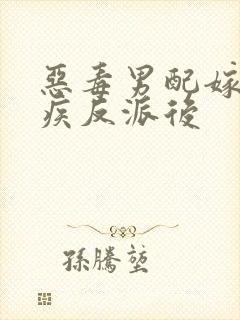 惡毒男配嫁
疾反派後
孫騰堃